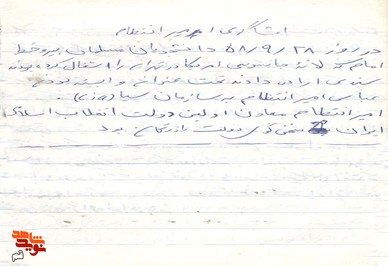 افشاگری امیر انتظام
در روز ۵۸/۹/۲۸ دانشجویان مسلمان پیرو خط
امام که لانه جاسوسی امریکا در تهران را اشغال کرده بودند
سندی ارائه دادند تحت عنوان وابسته بودن
عباس امیر انتظام به سازمان سیا (      ).
امیر انتظام معاون اولین دولت انقلاب اسلامی
ایران سخن گوی دولت بازرگان بود
شاهد
نوید